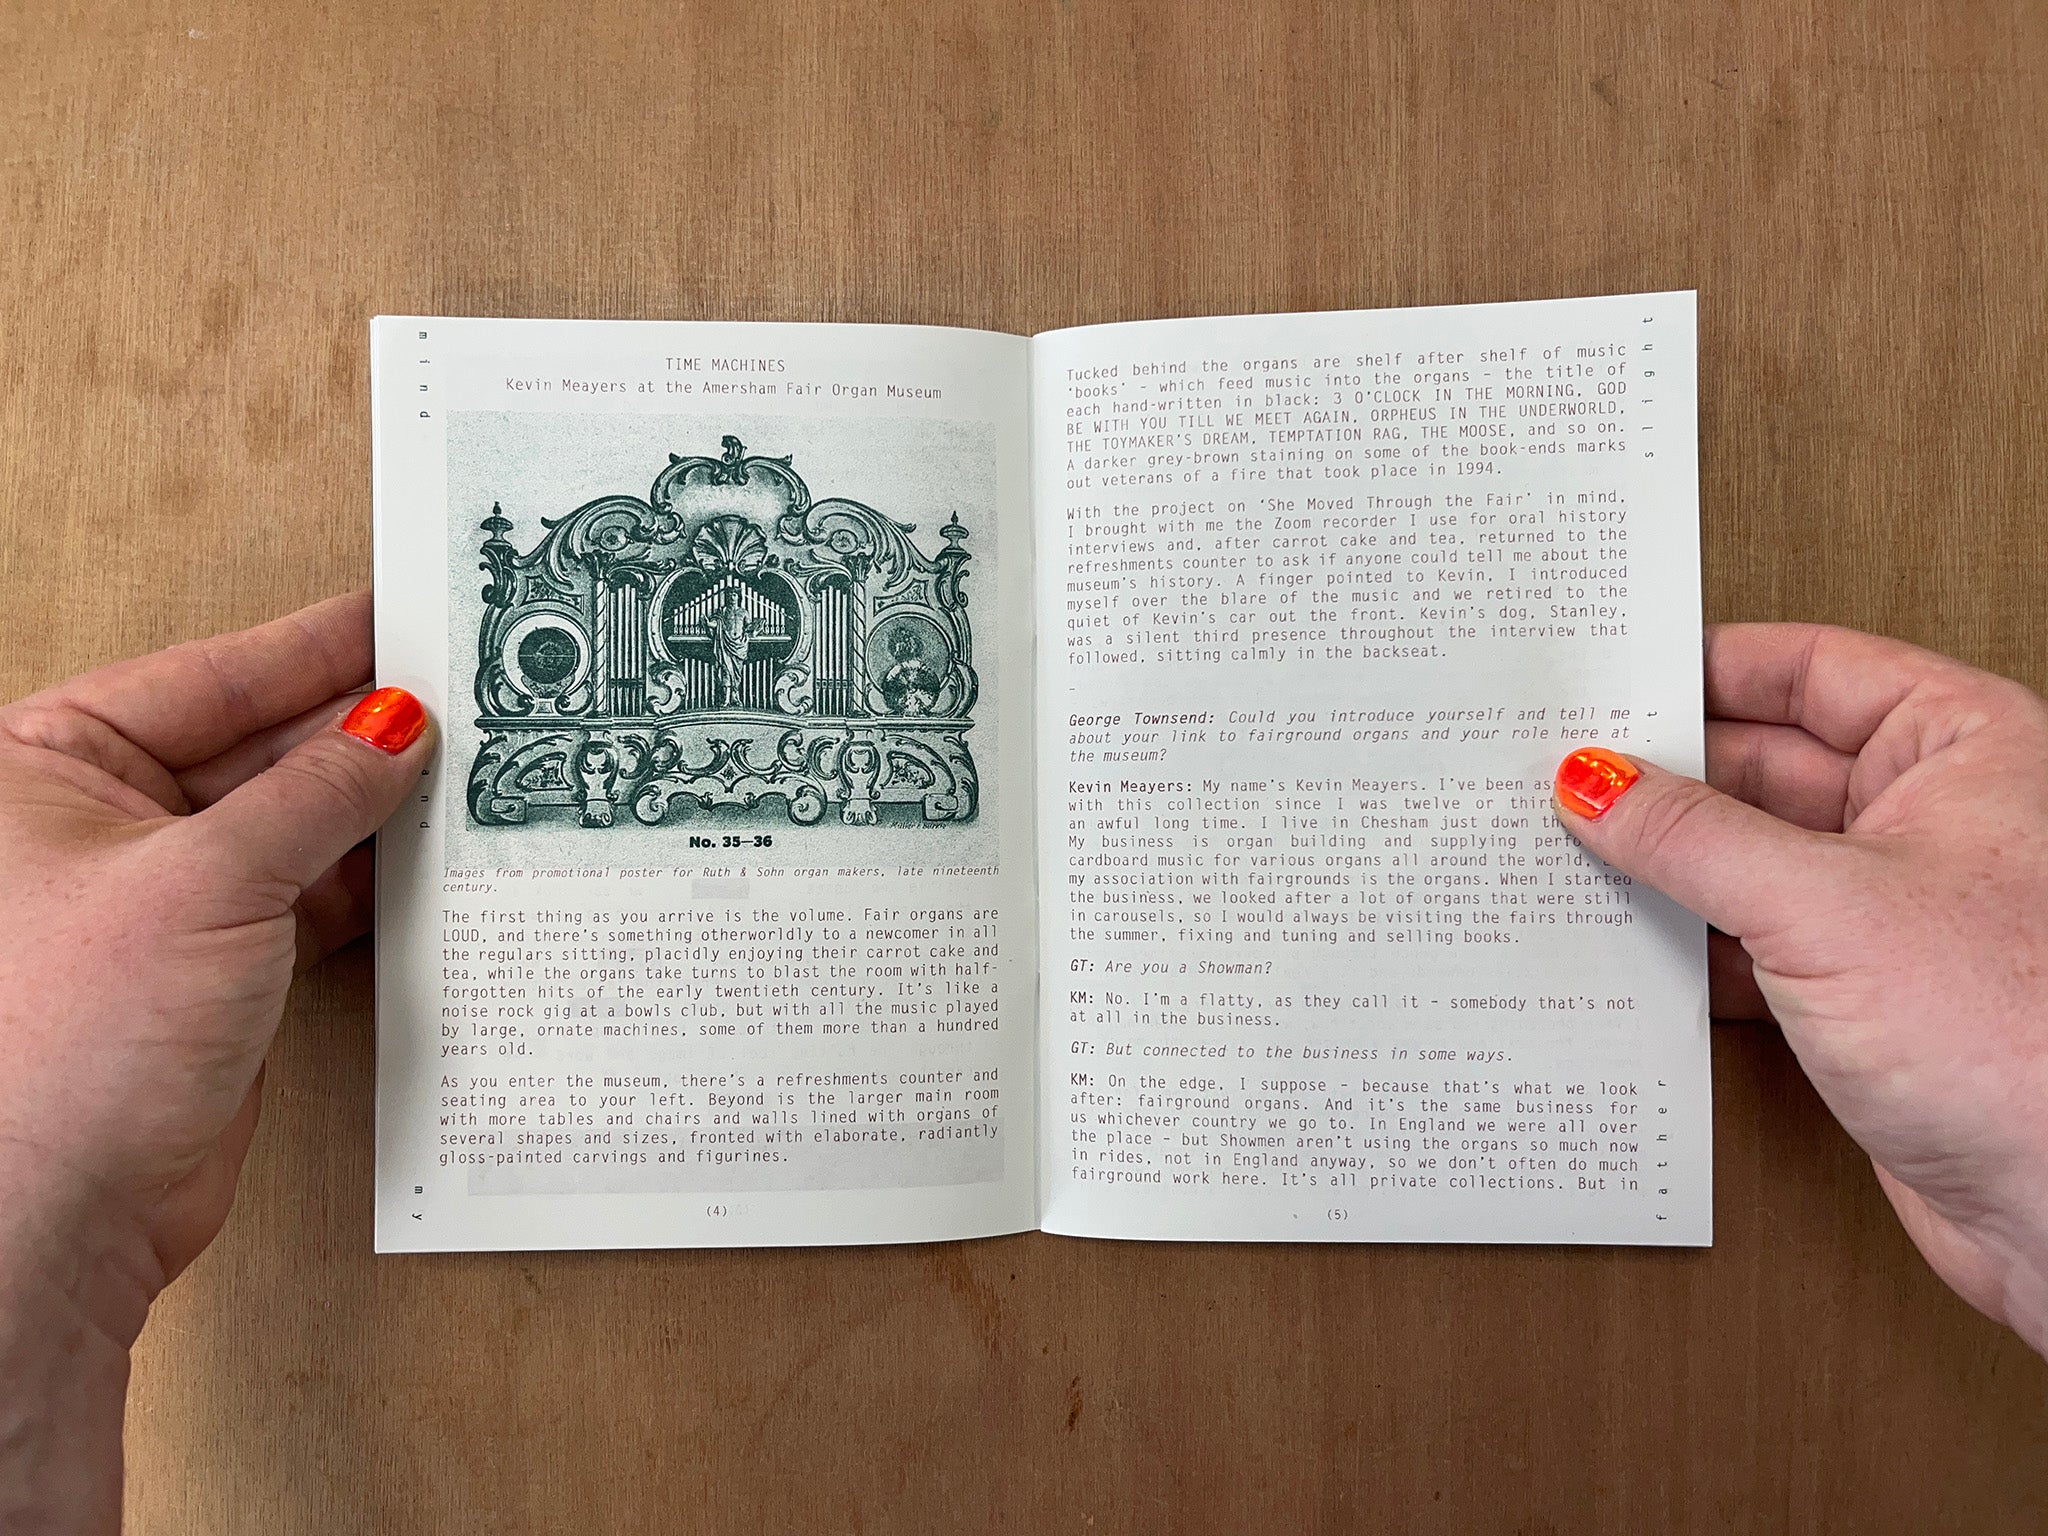 TIME MACHINES
Kevin Meayers at the Amersham Fair Organ Museum
No. 35—36
Images from promotional poster for Ruth & Sohn organ makers, late nineteenth
century.
The first thing as you arrive is the volume. Fair organs are
LOUD, and there's something otherworldly to a newcomer in all
the regulars sitting, placidly enjoying their carrot cake and
tea, while the organs take turns to blast the room with half-
forgotten hits of the early twentieth century. It's like a
noise rock gig at a bowls club, but with all the music played
by large, ornate machines, some of them more than a hundred
years old.
As you enter the museum, there's a refreshments counter and
seating area to your left. Beyond is the larger main room
with more tables and chairs and walls lined with organs of
several shapes and sizes, fronted with elaborate, radiantly
gloss-painted carvings and figurines.
(4)
my
and
mind
Tucked behind the organs are shelf after shelf of music
'books' - which feed music into the organs - the title of
each hand-written in black: 3 O'CLOCK IN THE MORNING, GOD
BE WITH YOU TILL WE MEET AGAIN, ORPHEUS IN THE UNDERWORLD,
THE TOYMAKER'S DREAM, TEMPTATION RAG, THE MOOSE, and so on.
A darker grey-brown staining on some of the book-ends marks
out veterans of a fire that took place in 1994.
With the project on 'She Moved Through the Fair' in mind,
I brought with me the Zoom recorder I use for oral history
interviews and, after carrot cake and tea, returned to the
refreshments counter to ask if anyone could tell me about the
museum's history. A finger pointed to Kevin, I introduced
myself over the blare of the music and we retired to the
quiet of Kevin's car out the front. Kevin's dog, Stanley,
was a silent third presence throughout the interview that
followed, sitting calmly in the backseat.
-
George Townsend: Could you introduce yourself and tell me
about your link to fairground organs and your role here at
the museum?
Kevin Meayers: My name's Kevin Meayers. I've been
with this collection since I was twelve or
an awful long time. I live in Chesham just down
My business is organ building and supplying
cardboard music for various organs all around the world,
my association with fairgrounds is the organs. When I started
the business, we looked after a lot of organs that were still
in carousels, so I would always be visiting the fairs through
the summer, fixing and tuning and selling books.
GT: Are you a Showman?
KM: No. I'm a flatty, as they call it - somebody that's not
at all in the business.
GT: But connected to the business in some ways.
KM: On the edge, I suppose - because that's what we look
after: fairground organs. And it's the same business for
us whichever country we go to. In England we were all over
the place - but Showmen aren't using the organs so much now
in rides, not in England anyway, so we don't often do much
fairground work here. It's all private collections. But in
(5)
father
slight